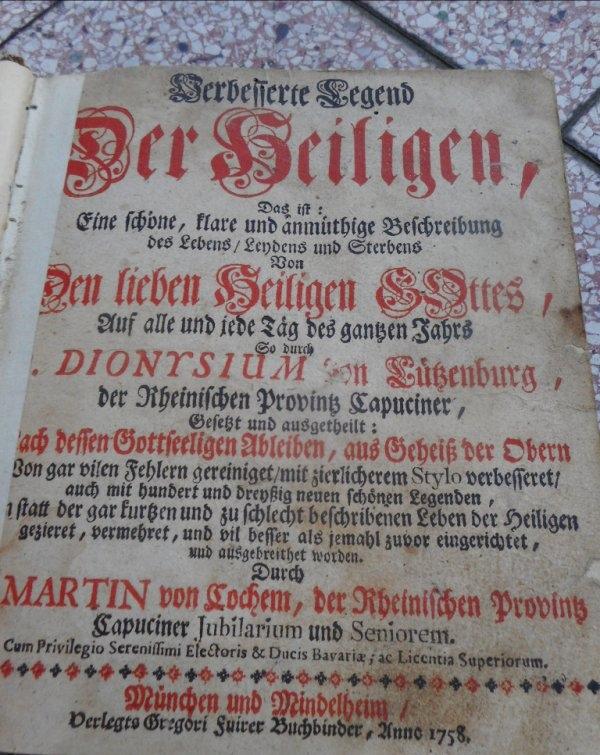 Verbesserte Legend
Der Heiligen,
Das ist:
Eine schöne, klare und anmüthige Beschreibung
des Lebens/ Leydens und Sterbens
Von
Den lieben Heiligen GOttes,
Auf alle und jede Täg des gantzen Jahrs
So durch
. DIONYSIUM von Lützenburg,
der Rheinischen Provintz Capuciner,
Gesetzt und ausgetheilt:
ach dessen Gottseeligen Ableiben, aus Geheiß der Obern
Von gar vilen Fehlern gereiniget/ mit zierlicherem Stylo verbesseret/
auch mit hundert und dreyßig neuen schönen Legenden,
n statt der gar kurtzen und zu schlecht beschribenen Leben der Heiligen
gezieret, vermehret, und vil besser als jemahl zuvor eingerichtet,
und ausgebreithet worden.
Durch
MARTIN von Cochem, der Rheinischen Provintz
Capuciner Jubilarium und Seniorem.
Cum Privilegio Serenissimi Electoris & Ducis Bavariæ, ac Licentia Superiorum.
München und Mindelheim,
Verlegts Gregori Fuirer Buchbinder, Anno 1758.